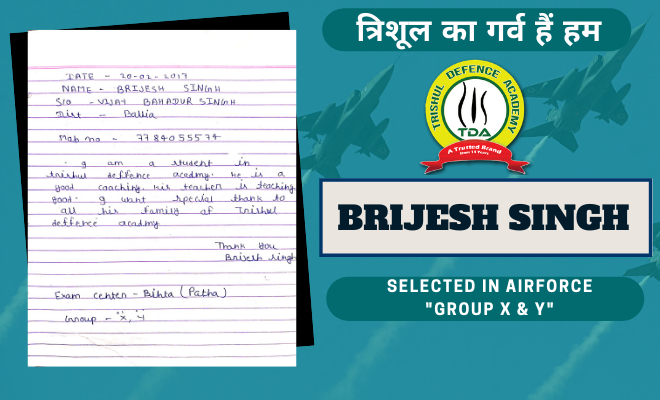 त्रिशूल का गर्व हैं हम
DATE - 20-02-2017
NAME - BRIJESH SINGH
S/O - VIJAY BAHADUR SINGH
Dist - Ballia
Mob no - 7784055574
I am a student in
trishul deffence acadmy. He is a
good coaching. His teacher is teaching
good. I want special thank to
all his family of Trishul
deffence acadmy
Thank you
Brijesh singh
Exam center - Bihta (Patna)
Group - "X, Y"
TRISHUL DEFENCE ACADEMY
TDA
A Trutted Brand
from 14 Years
BRIJESH SINGH
SELECTED IN AIRFORCE
"GROUP X & Y"